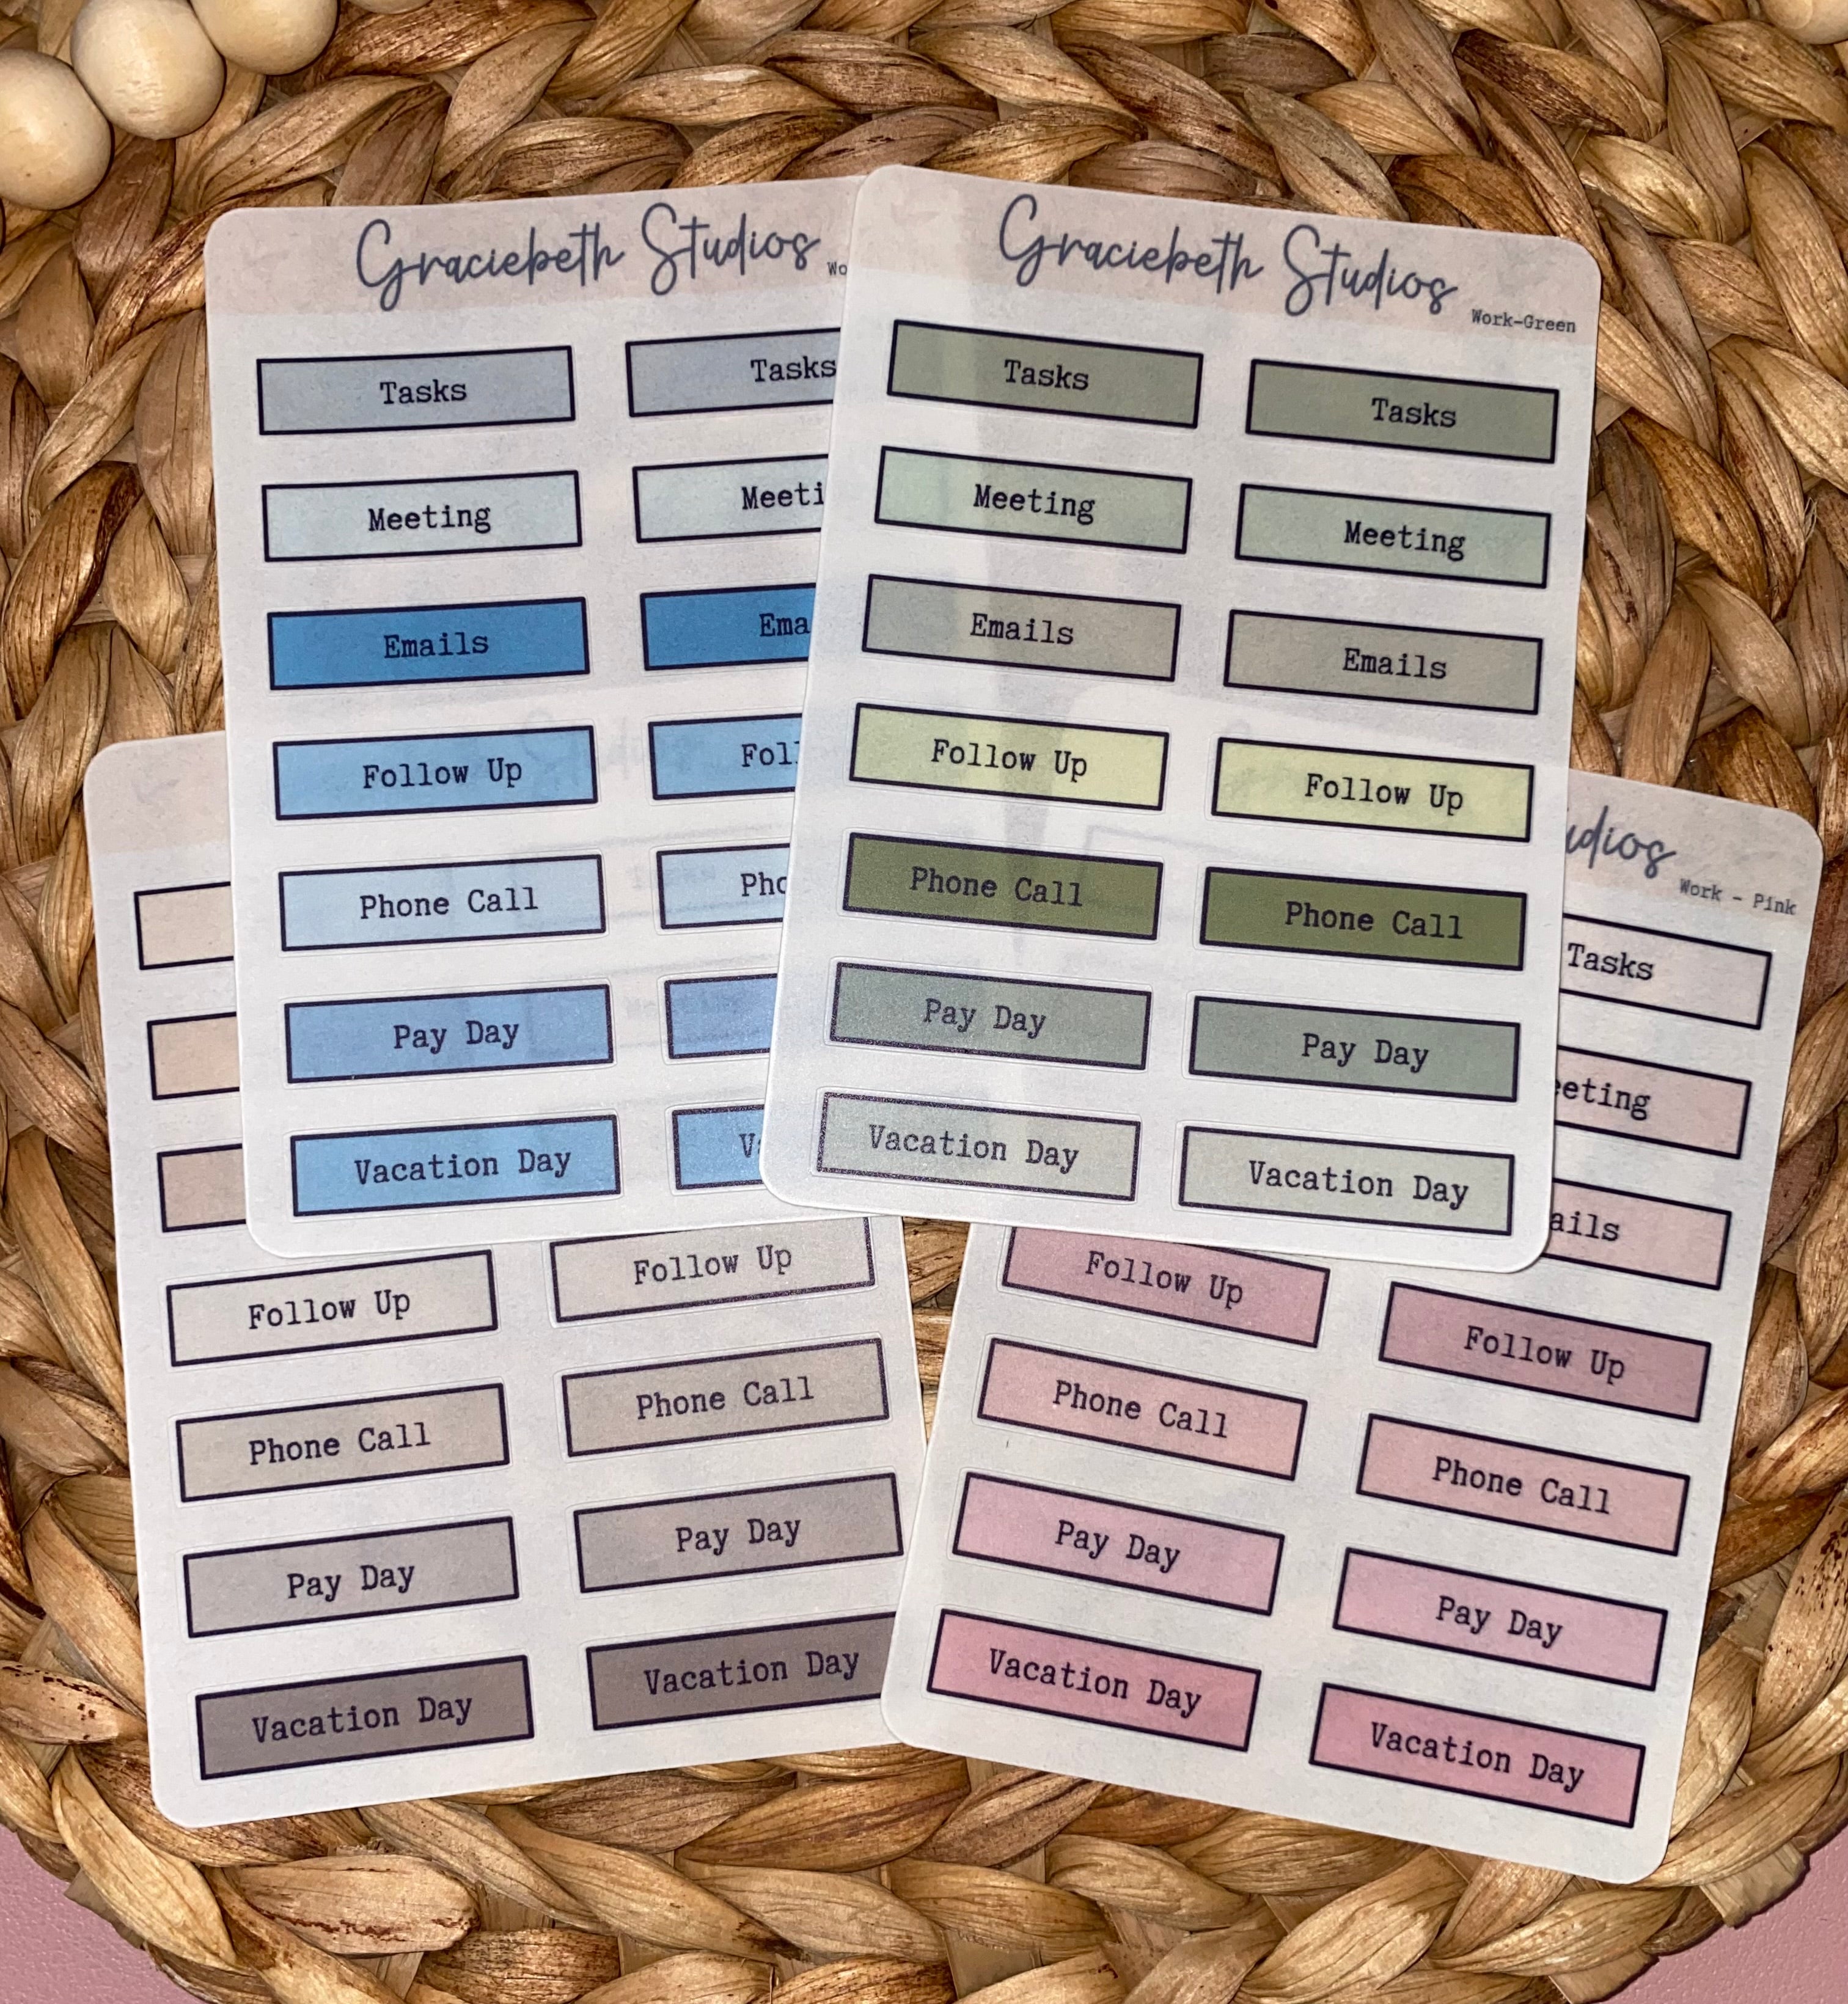 Graciebeth Studios
Tasks Tasks
Meeting
Emails
Follow Up
Phone Call
Pay Day
Vacation Day
Graciebeth Studios
Work-Green
Tasks Tasks
Meeting Meeting
Emails Emails
Follow Up Follow Up
Phone Call Phone Call
Pay Day Pay Day
Vacation Day Vacation Day
Follow Up Follow Up
Phone Call Phone Call
Pay Day Pay Day
Vacation Day Vacation Day
Work - Pink
Tasks
Follow Up Follow Up
Phone Call Phone Call
Pay Day Pay Day
Vacation Day Vacation Day